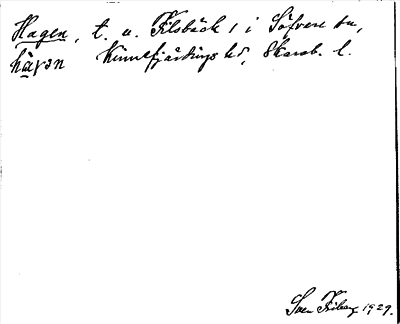 Hagen, t. u. Filsbäck 1 i Söfvare sn,
hàgən Kinnefjärdings hd, Skarab. l.
Sven Friberg 1929.